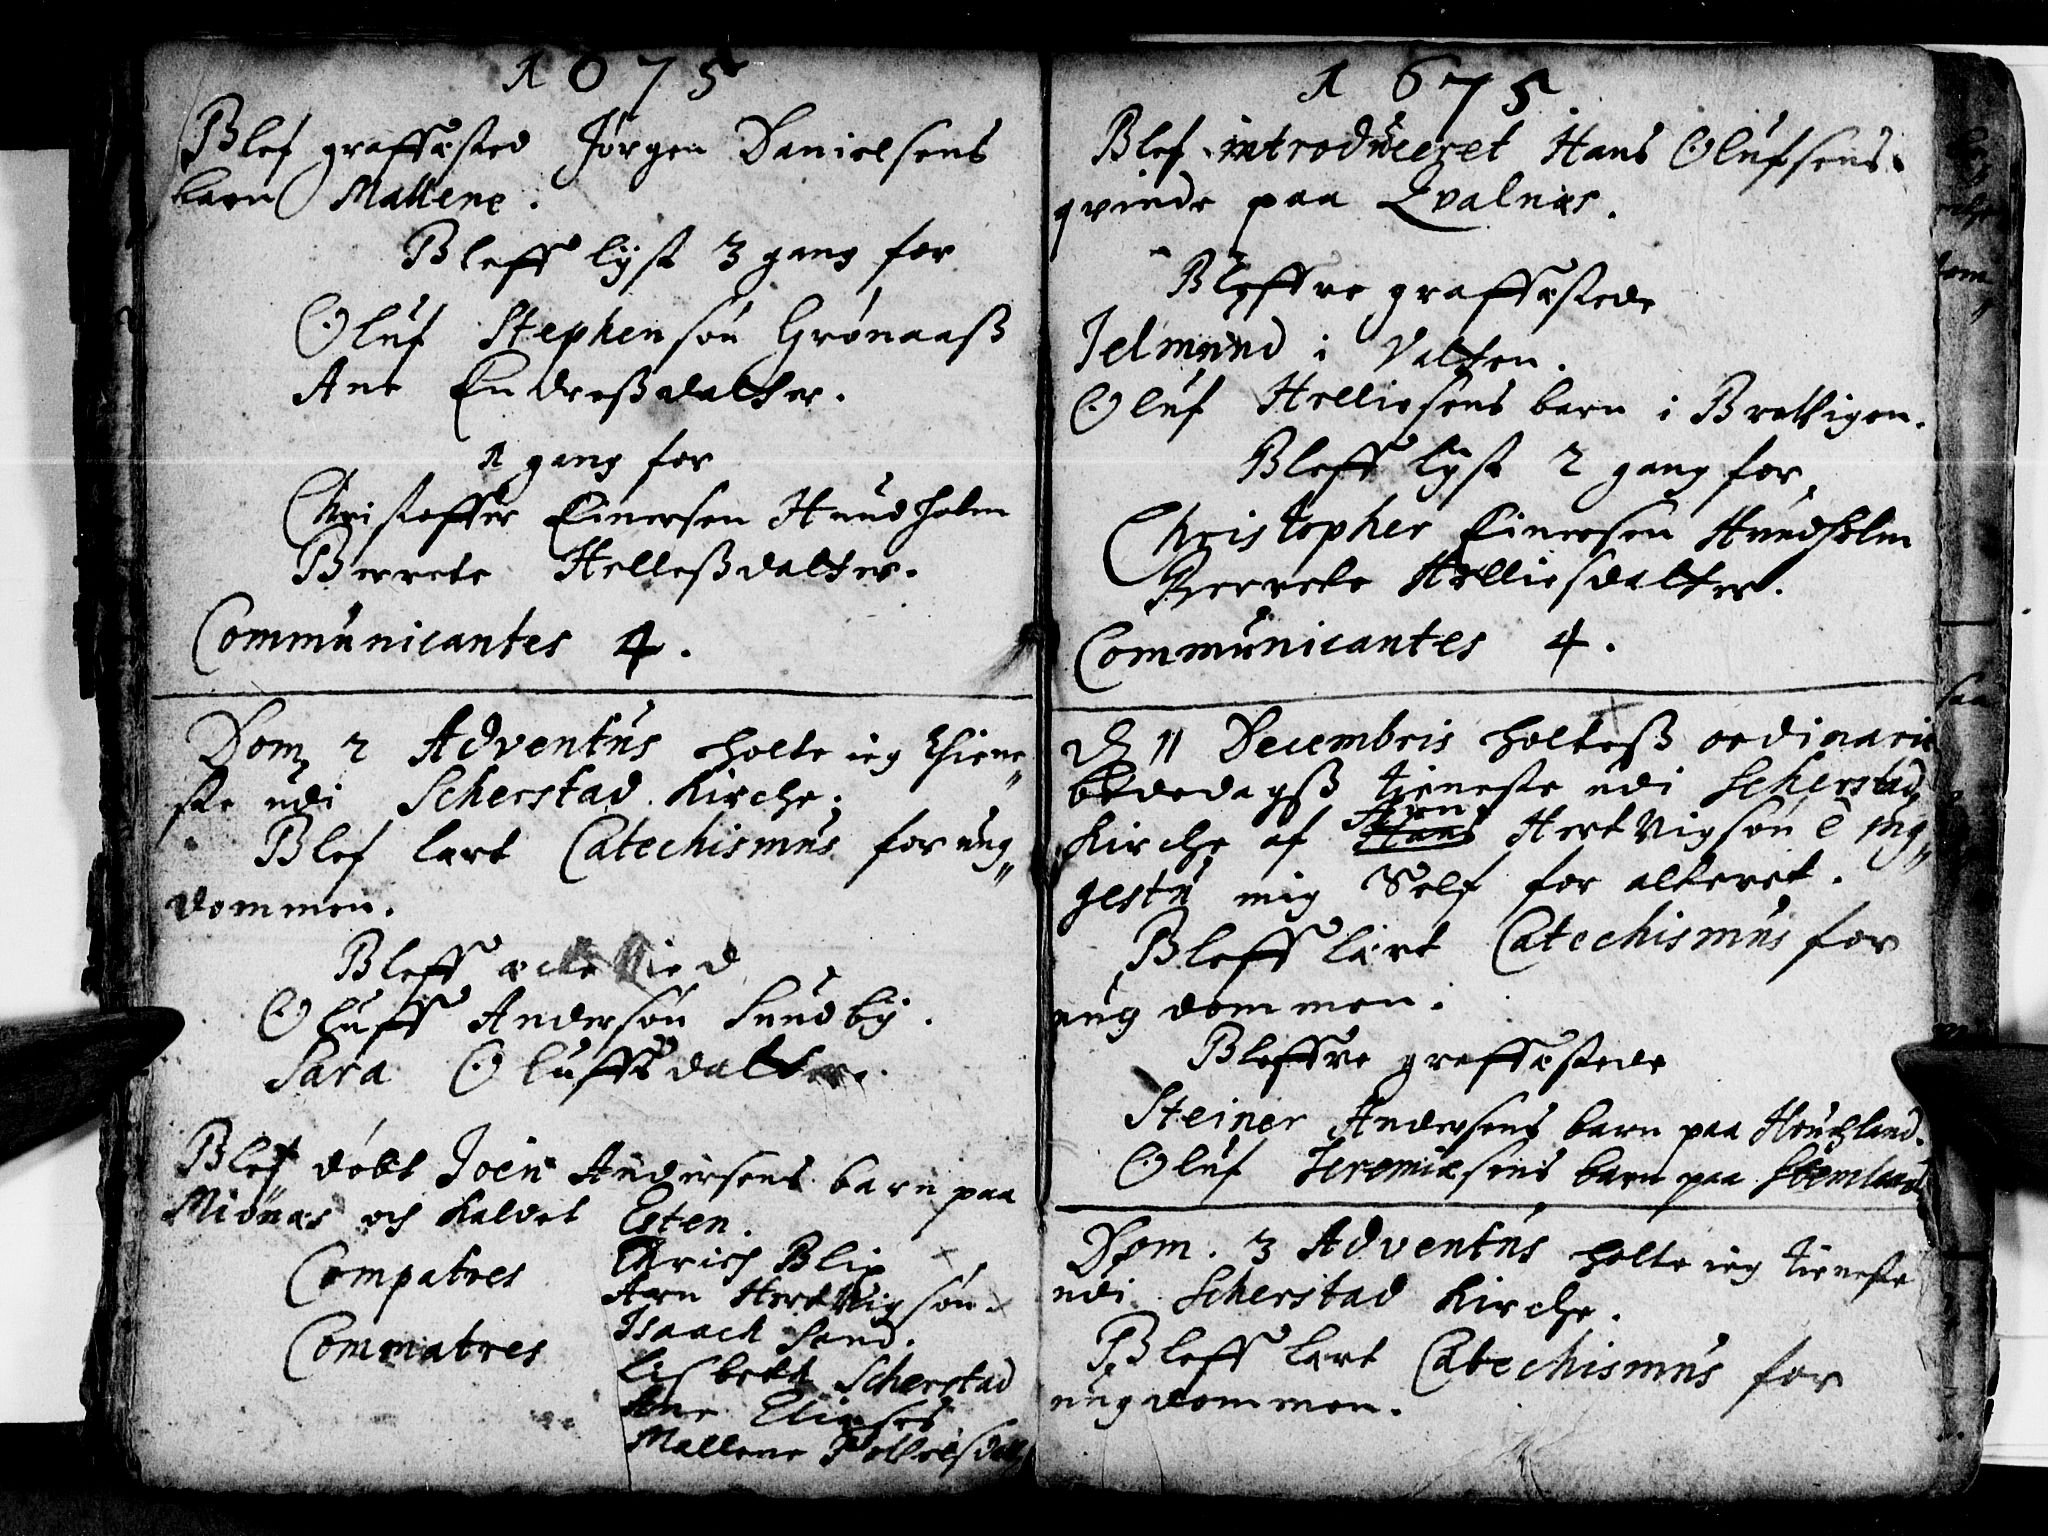 1675
Blef graffsæsted Jørgen Danielsens
barn Mallene.
Bleff lyst 3 gang for
Oluf Stephensøn Grønaaß
Ane Endreßdatter.
1 gang for
Christoffer Einersen Hundholm
Berrete Helleßdatter.
Communicantes 4.
Dom 2 Adventus holte ieg thiene„
ste udi Scherstad Kirche.
Blef lært Catechismus for ung„
dommen.
Bleff ecte Vied
Oluff Andersøn Sundby.
Sara Oluffsdatter.
Blef døbt Joen Andersens barn paa
Misnæs och kaldet Esten.
Compatres Chrisch Blix
Arn HertVigsøn.
Isaach Sand.
Commatres Lisbett Scherstad
Ane Eliases
Mallene Pettersdatt
1675
Blef introduceret Hans Olufsens
qvinde paa Qvalnæs.
Bleffve graffsæstede
Jelmund i Valten.
Oluf Helliesens barn i Brattigen.
Bleff lyst 2 gang for
Christopher Einersen Hundholm
Berrete Helliesdatter.
Communicantes 4.
D 11 Decembris holteß ordinarie
bededagß tieneste udi Scherstad
Kirche af Hans Arn HertVigsøn è sug„
gestu mig Self for alteret.
Bleff lært Catechismus for
ungdommen.
Bleffve greffsæstede
Steiner Andersens barn paa Houchland.
Oluf Jeremiæsens barn paa
Dom. 3 Adventus holte ieg tieneste
udi Scherstad Kirche.
Bleff lært Catechismus for
ungdommen.